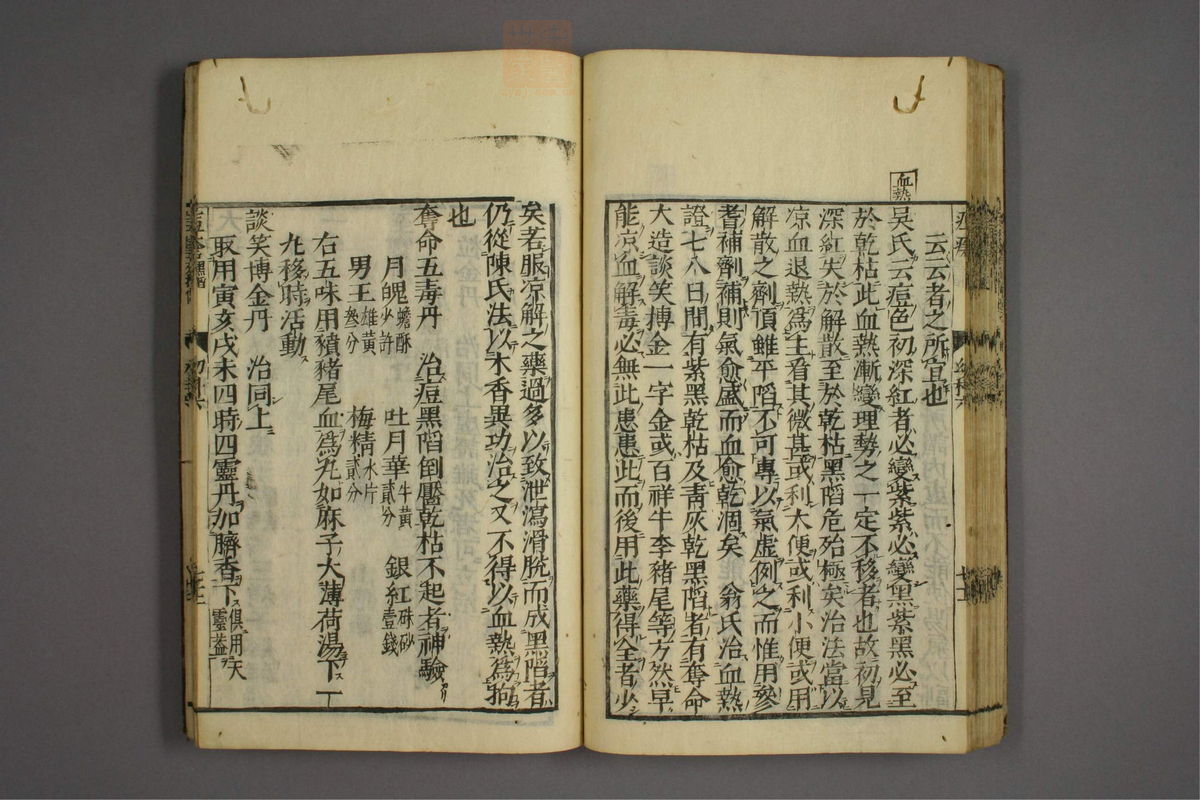 血熱
云云者之所宜也
吳氏云痘色初深紅者必變紫紫必變黑紫黑必至
於乾枯此血熱漸變理勢之一定不移者也故初見
深紅失於解散至於乾枯黑陷危殆極矣治法當以
凉血退熱爲主看其微甚或利大便或利小便或用
解散之劑頂雖平陷不可專以氣虛例之而惟用參
耆補劑補則氣愈盛而血愈乾涸矣 翁氏治血熱
證七八日間有紫黑乾枯及青灰乾黑陷者有奪命
大造談笑搏金一字金或百祥牛李豬尾等方然早
能凉血解毒必無此患患此而後用此藥得全者少
矣若服凉解之藥過多以致泄瀉滑脫而成黑陷者
仍從陳氏法以木香異功治之又不得以血熱爲拘
也
奪命五毒丹 治痘黑陷倒靨乾枯不起者神驗
月魄蟾酥少許 吐月華牛黃貳分 銀紅硃砂壹錢
男王雄黃叄分 梅精氷片貳分
右五味用豶豬尾血爲丸如麻子大薄荷湯下一
丸移時活動
談笑博金丹 治同上
取用寅亥戌未四時四靈丹加臍香下俱用天靈蓋